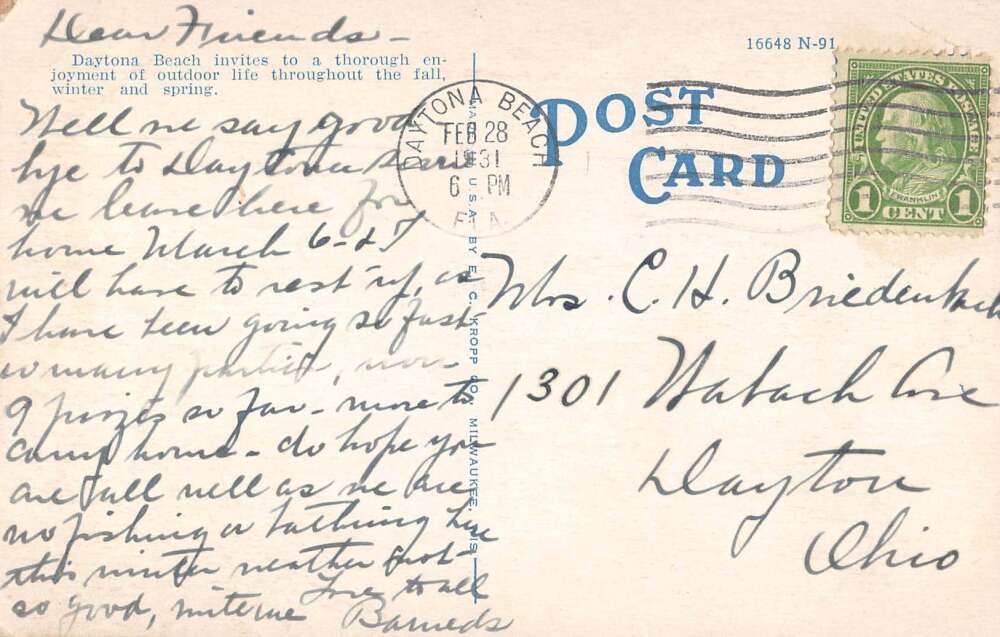 Dear Friends -
Daytona Beach invites to a thorough en-
joyment of outdoor life throughout the fall,
winter and spring.
Well we say good
bye to Daytona
we leave here for
home March 6 - &
will have to rest up, as
I have been going so fast
so many parties, won
9 prizes so far - more to
carry home - do hope you
are all well as we are
no fishing or bathing here
this winter weather not
so good, write me
Love to all
16648 N-91
POST
CARD
DAYTONA BEACH
FEB 28
1931
6 PM
FLA.
MADE IN U.S.A. BY E. C. KROPP CO., MILWAUKEE, WIS.
UNITED STATES POSTAGE
FRANKLIN
1 CENT 1
Mrs. C. H. Briedenbach
1301 Wabash Ave
Dayton
Ohio